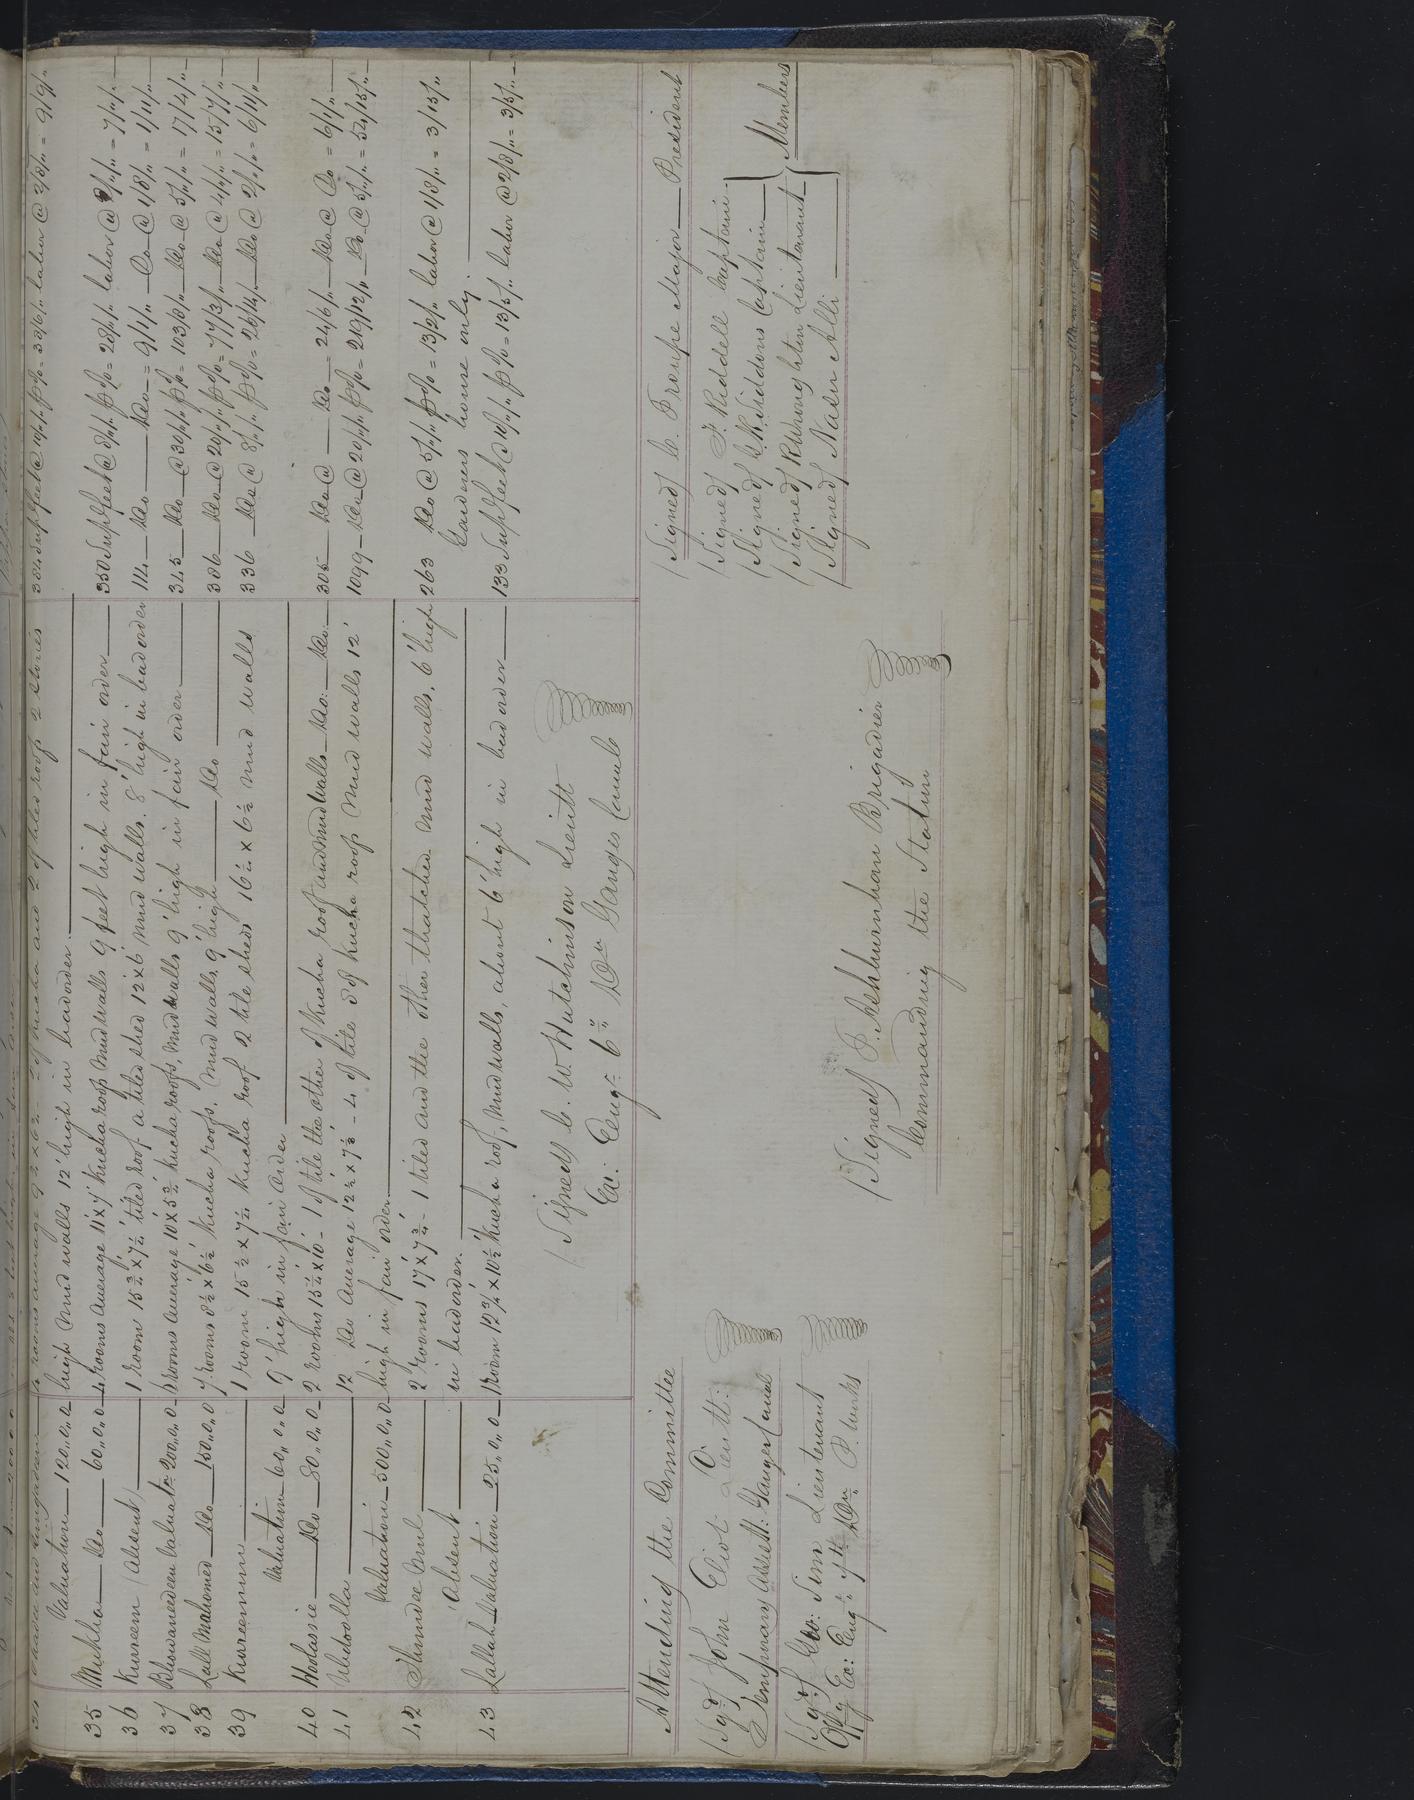 4 rooms average 9½ x 6½ - 2 of kucha and 2 of tiles roof 2 stories 304 Sup. feet @ 10/"/" p% = 30/6/" labor @ 2/8/" = 9/9/"
Valuation 120,,0,,0 high mud walls 12' high in bad order
35 Mukha Do 60,,0,,0 4 rooms average 11' x 7' kucha roof mud walls 9 feet high in fair order 350 Sup. feet @ 8/"/" p% = 28/"/" labor @ 2/"/" = 7/"/"
36 Kurreem (absent) 1 room 15¾ x 7¼ tiled roof a tiled shed 12 x 6 mud walls. 8' high in bad order 114 Do Do = 9/1/" Do @ 1/8/" = 1/11/"
37 Bhowaneedeen Valuatn. 200,,0,,0 6 rooms average 10 x 5¾ kucha roofs, mud walls 9' high in fair order 345 Do @ 30/"/" p% = 103/8/" Do @ 5/"/" = 17/4/"
38 Lall Mahomed Do 150,,0,,0 7 rooms 8½ x 6½ kucha roofs. mud walls 9' high Do 386 Do @ 20/"/" p% = 77/3/" Do @ 4/"/" = 15/7/"
39 Kurreemun 1 room 15½ x 7¼ kucha roof 2 tile sheds 16½ x 6½ mud walls 336 Do @ 8/"/" p% = 26/14/" Do @ 2/"/" = 6/11/"
Valuation 60,,0,,0 9' high in fair order
40 Hoolassie Do 80,,0,,0 2 rooms 15½ x 10 - 1 of tile the other of kucha roof and mud walls Do: Do: 305 Do @ Do 24/6/" Do @ Do = 6/1/"
41 Ubdoolla 12 Do average 12½ x 7½ - 4 of tile 8 of kucha roof mud walls 12' 1099 Do @ 20/"/" p% = 219/12/" Do @ 5/"/" = 54/15/"
Valuation 500,,0,,0 high in fair order
42 2 rooms 17' x 7¾ - 1 tiled and the other thatched mud walls, 6' high 263 Do @ 5/"/" p% = 13/2/" labor @ 1/8/" = 3/15/"
Absent in bad order Gardeners house only
43 Lallah Valuation 25,,0,,0 1 room 12¾ x 10½ kucha roof, mud walls, about 6' high in bad order 133 Sup. feet @ 10/"/" p% = 13/5/" labor @ 2/8/" = 3/5/"
(Signed) C. W. Hutchinson Lieutt
Ex: Engr. 6" Don Ganges Canal
Attending the Committee
(Sgd) John Eliot Lieutt:
Temporary Assistt: Ganges Canal
(Sgd) Geo: Sim Lieutenant
Offg Ex: Engr. 7th Don P. Works
(Signed) C. Troupe Major President
(Signed) F. Riddell Captain
(Signed) Siddons Captain
(Signed) R. Wroughton Lieutenant
(Signed) Nasir Alli
Members
(Signed) T. Ashburnham Brigadier
Commanding the Station